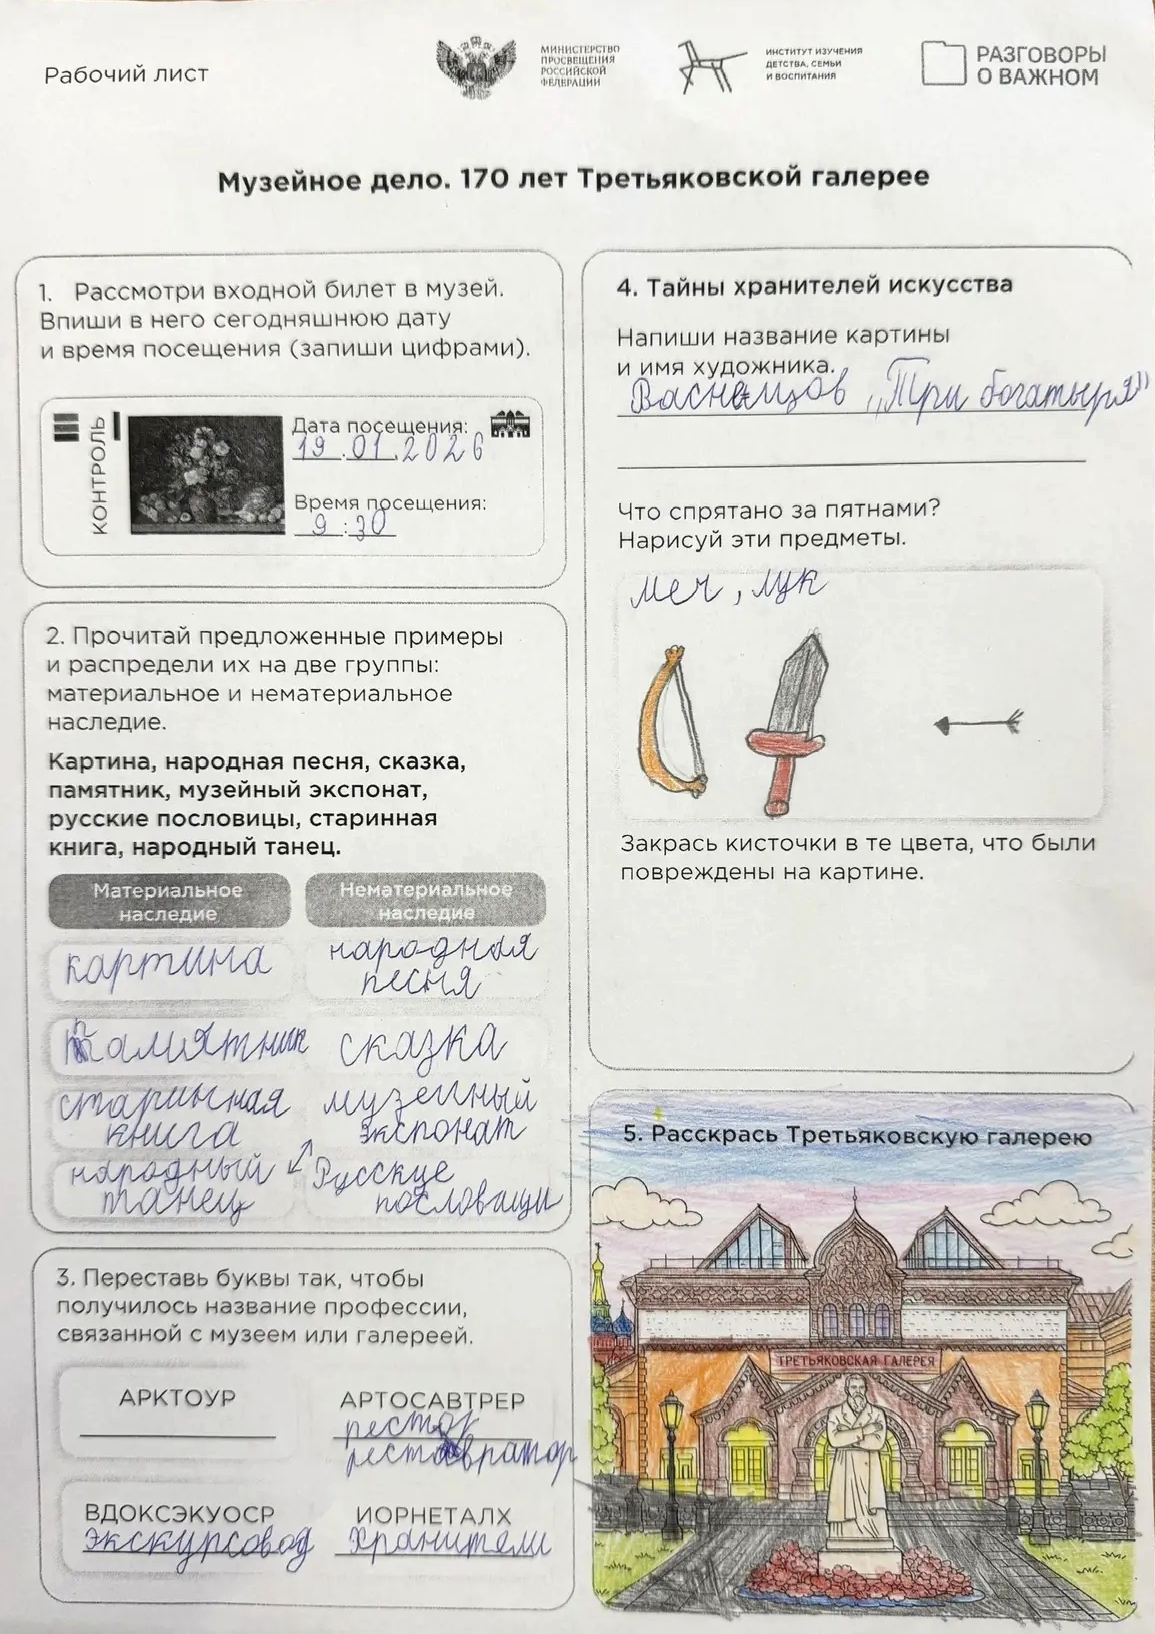 Рабочий лист
МИНИСТЕРСТВО
ПРОСВЕЩЕНИЯ
РОССИЙСКОЙ
ФЕДЕРАЦИИ
ИНСТИТУТ ИЗУЧЕНИЯ
ДЕТСТВА, СЕМЬИ
И ВОСПИТАНИЯ
РАЗГОВОРЫ
О ВАЖНОМ
Музейное дело. 170 лет Третьяковской галерее
1. Рассмотри входной билет в музей.
Впиши в него сегодняшнюю дату
и время посещения (запиши цифрами).
КОНТРОЛЬ
Дата посещения:
19.01.2026
Время посещения:
9:30
2. Прочитай предложенные примеры
и распредели их на две группы:
материальное и нематериальное
наследие.
Картина, народная песня, сказка,
памятник, музейный экспонат,
русские пословицы, старинная
книга, народный танец.
Материальное
наследие
Нематериальное
наследие
картина
народная
песня
памятник
сказка
старинная
книга
музейный
экспонат
народный
танец
Русские
пословицы
3. Переставь буквы так, чтобы
получилось название профессии,
связанной с музеем или галереей.
АРКТОУР
АРТОСАВТРЕР
реставратор
ВДОКСЭКУОСР
экскурсовод
ИОРНЕТАЛХ
Хранители
4. Тайны хранителей искусства
Напиши название картины
и имя художника.
Васнецов „Три богатыря"
Что спрятано за пятнами?
Нарисуй эти предметы.
меч, лук
Закрась кисточки в те цвета, что были
повреждены на картине.
5. Расскрась Третьяковскую галерею
ТРЕТЬЯКОВСКАЯ ГАЛЕРЕЯ